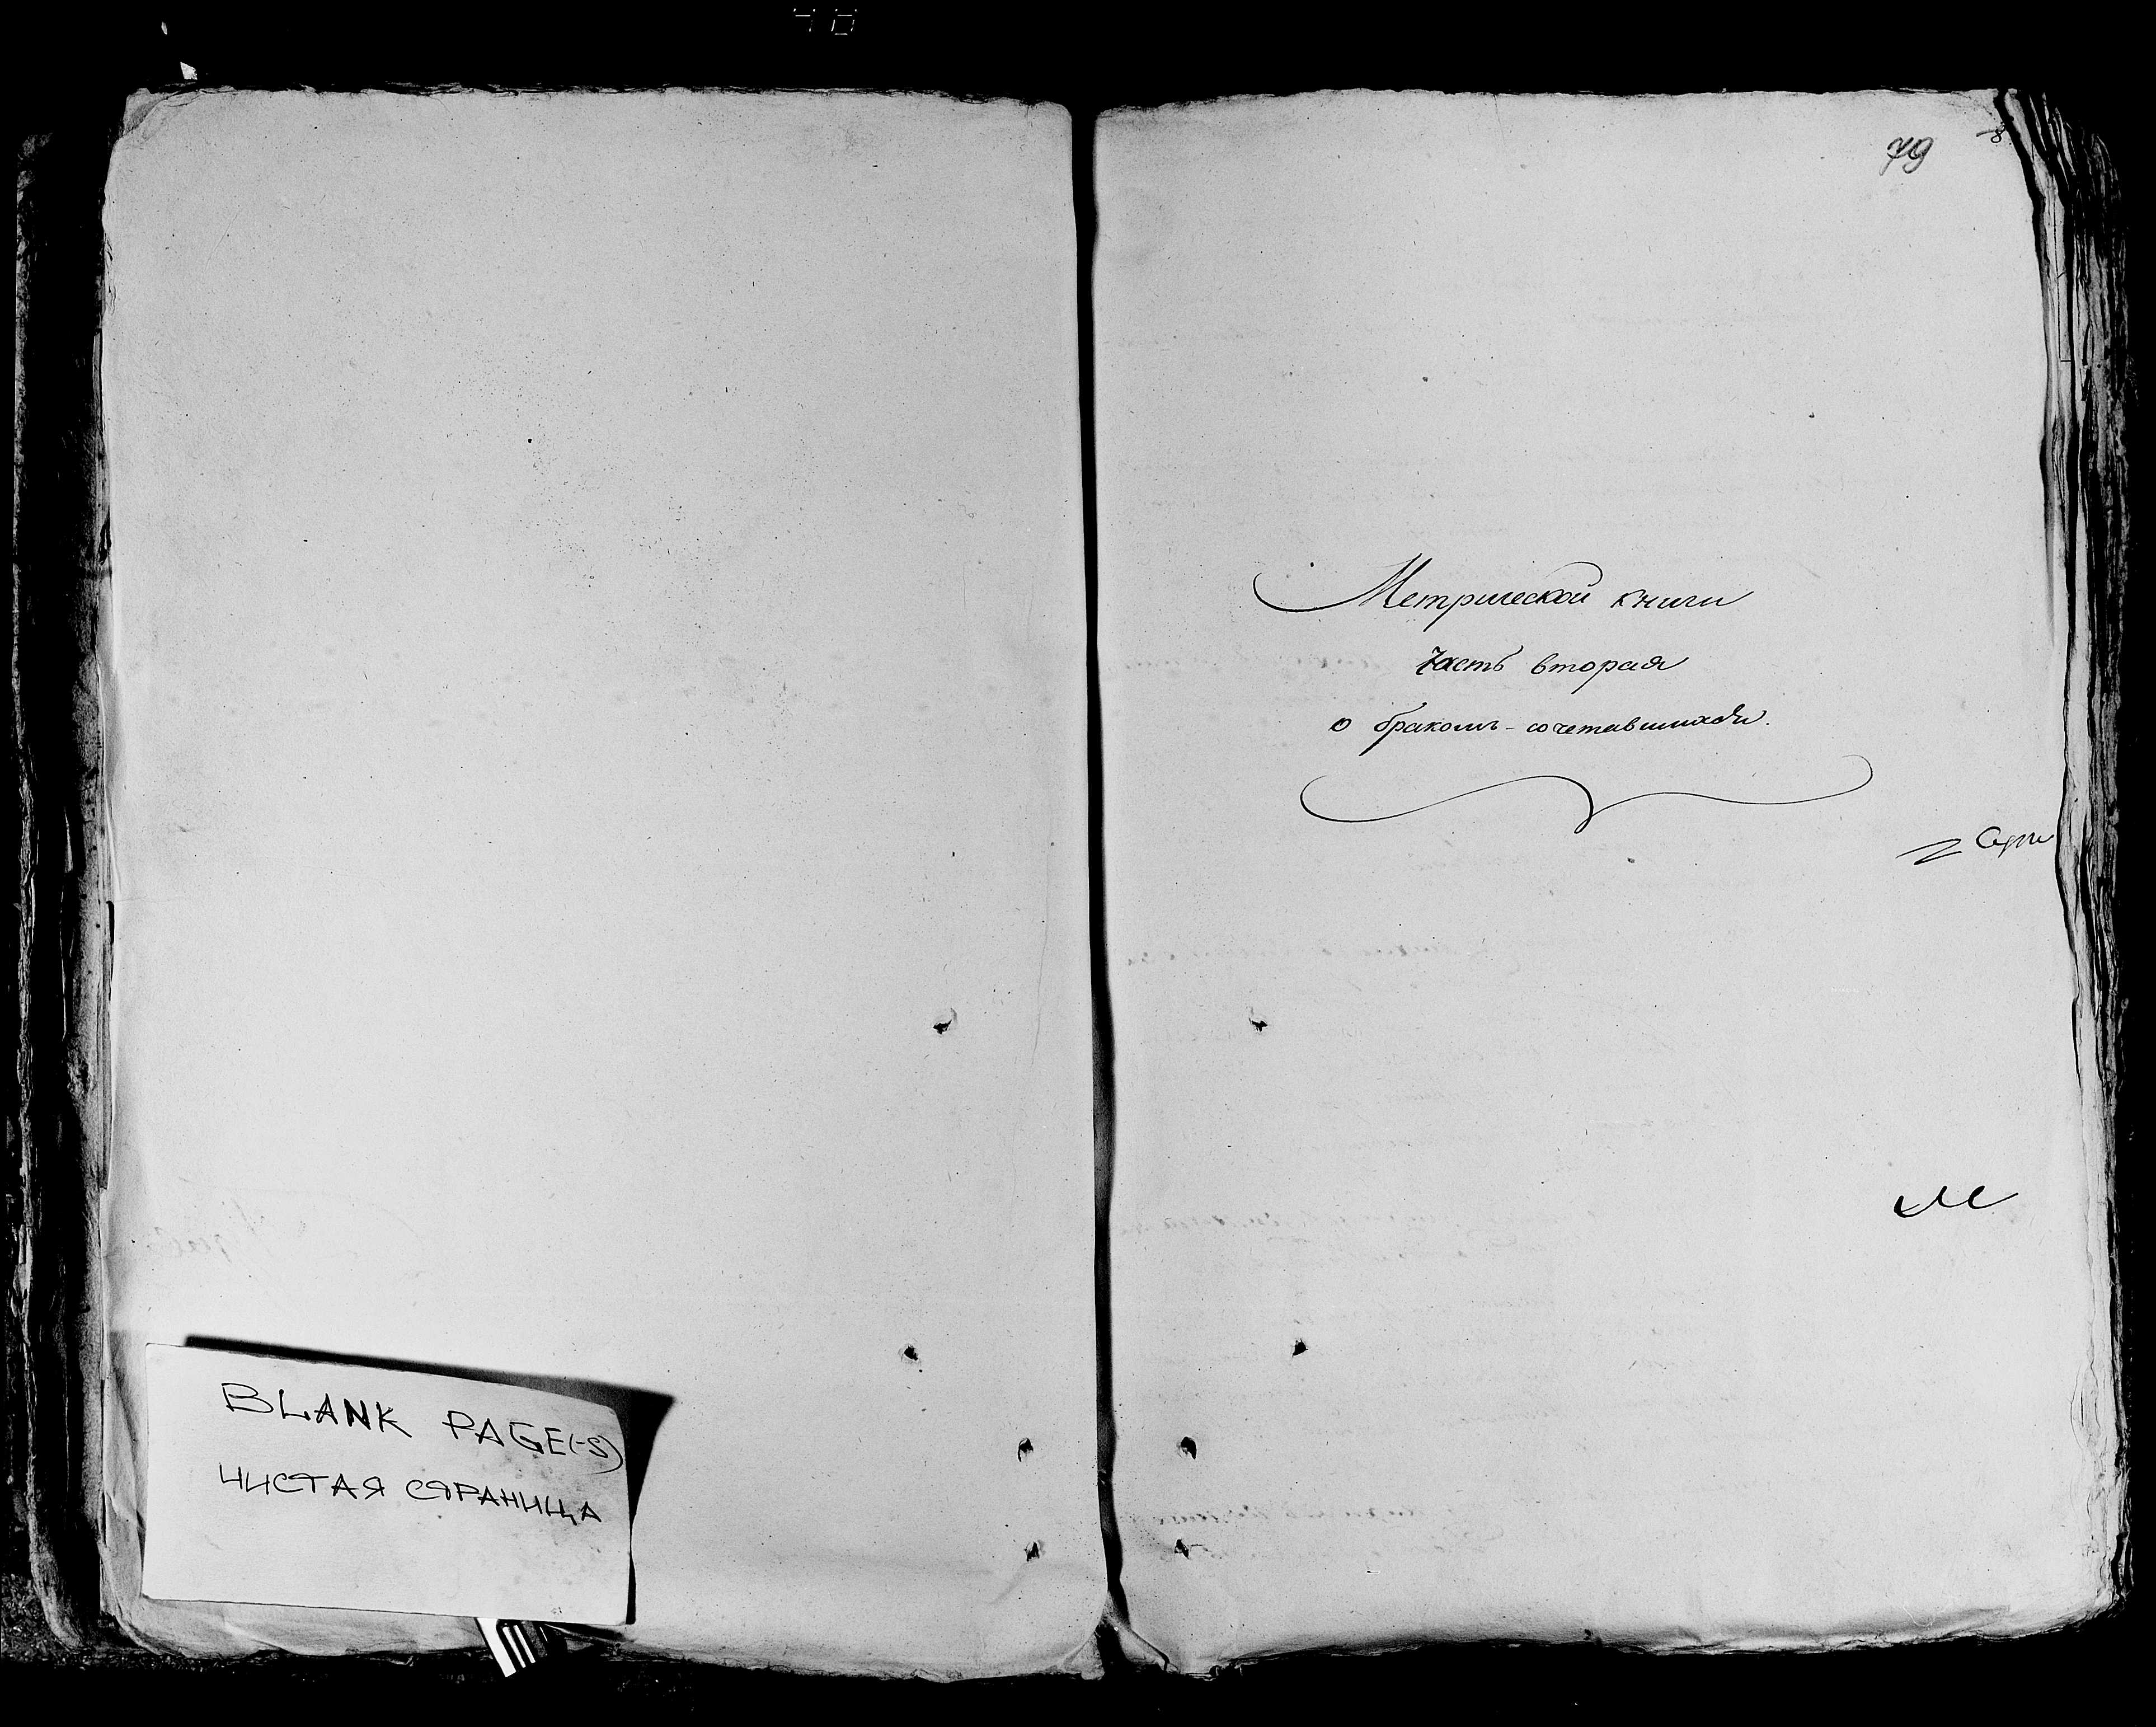 BLANK PAGE(-S)
ЧИСТАЯ СТРАНИЦА
79
Метрической книги
Часть вторая
о бракомъ-сочетавшихся.